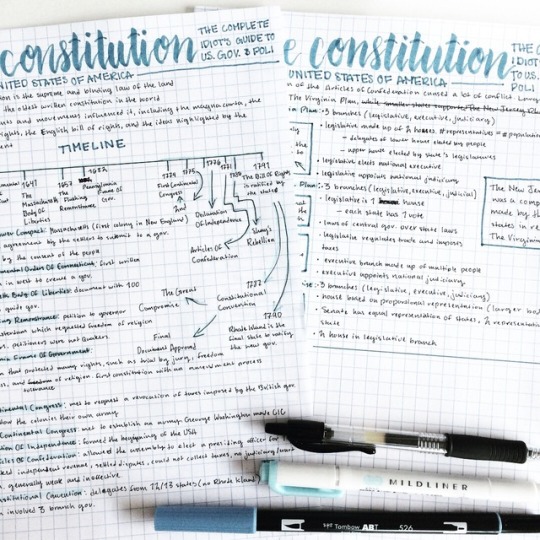 constitution
THE COMPLETE
IDIOT'S GUIDE TO
U.S. GOV. & POLI
UNITED STATES OF AMERICA
is the supreme and binding law of the land
the oldest written constitution in the world
and movements influenced it, including the mayflower,
rights, the English bill of rights, and the ideas highlighted by the
TIMELINE
1641
The Massachusetts Body Of Liberties
1657
Flushing Remonstrance
1682
Pennsylvania Frame Of Gov.
1774
First Continental Congress
1775
2nd
1776
Declaration Of Independence
1777
Articles Of Confederation
Shay's Rebellion
1791
The Bill Of Rights is ratified by the states
Compact: Massachusetts (first colony in New England)
agreement by the settlers to submit to a gov.
by the consent of the people
Orders Of Connecticut: first written
in west to create a gov.
Body Of Liberties: document with 100
Remonstrance: petition to governor
which requested freedom of religion
petitioners were not Quakers
Frame Of Government:
that protected many rights, such as trial by jury, freedom
of religion. first constitution with an amendment process
tolerance
1787
Constitutional Convention
The Great Compromise
Final Document Approval
1790
Rhode Island is the final state to ratify the new gov.
Continental Congress: met to request a revocation of taxes imposed by the British gov.
the colonies their own army
Continental Congress: met to establish an army. George Washington made CIC
Of Independence: formed the beginning of the USA
Of Confederation: allowed the assembly to elect a presiding officer for
independent revenue, settled disputes, could not collect taxes, no judiciary
generally weak and ineffective
Constitutional Convention: delegates from 12/13 states (no Rhode Island)
involved 3 branch gov.
e constitution
THE CO
IDIOT'S
TO U.S.
POLI
UNITED STATES OF AMERICA
of the Articles of Confederation caused a lot of conflict
The Virginia Plan, while smaller states supported The New Jersey Plan
Plan: 3 branches (legislative, executive, judiciary)
• legislative made up of 2 houses. # representatives = # population
- delegates of lower house elected by people
- upper house elected by state's legislatures
• legislative elects national executive
• legislative appoints national judiciary
Plan: 3 branches (legislative, executive, judicial)
• legislative is 1 house
- each state has 1 vote
• laws of central gov. over state laws
• legislative regulates trade and imposes taxes
• executive branch made up of multiple people
• executive appoints national judiciary
The New Jersey
was a comp
made by the
states in re
The Virginia
3 branches (legislative, executive, judiciary)
• house based on proportional representation
• Senate has equal representation of states, 2 representatives
state
• 2 house in legislative branch
MILDLINER
Tombow ABT
526